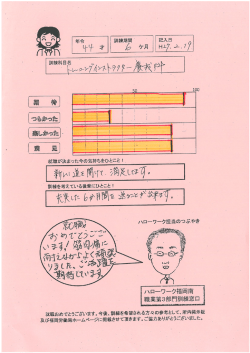 年令
44 才
訓練期間
6 ヶ月
記入日
H27.2.19
訓練科目名
トレーニングインストラクター養成科
50
100
期待
つらかった
楽しかった
満足
就職が決まった今の気持ちをひとこと!
新しい道を開けて、満足してます。
訓練を考えている後輩にひとこと!
充実した6か月間を送ることが出来ます。
就職
おめでとうござ
います!
ハローワーク担当のつぶやき
ハローワーク福岡南
職業第3部門訓練窓口
就職おめでとうございます。今後、訓練を希望される方々の参考として、室内掲示板
及び福岡労働局ホームページに掲載させて頂きます。ご協力ありがとうございました。